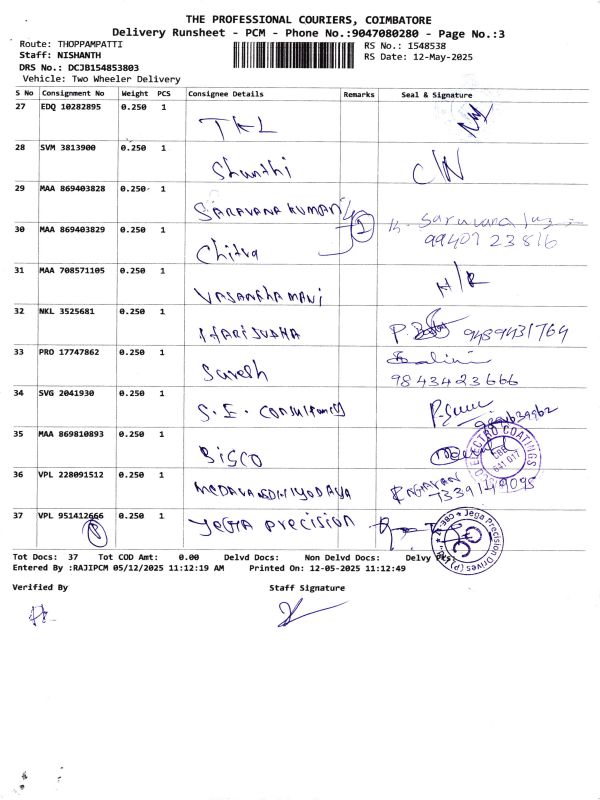 THE PROFESSIONAL COURIERS, COIMBATORE
Delivery Runsheet - PCM - Phone No.:9047080280 - Page No.:3
Route: THOPPAMPATTI RS No.: 1548538
Staff: NISHANTH RS Date: 12-May-2025
DRS No.: DCJB154853803
Vehicle: Two Wheeler Delivery
S No Consignment No Weight PCS Consignee Details Remarks Seal & Signature
27 EDQ 10282895 0.250 1
TKL
28 SVM 3813900 0.250 1
Shanthi
29 MAA 869403828 0.250 1
SARAVANA KUMAR
30 MAA 869403829 0.250 1 1
Chitra 9940723816
31 MAA 708571105 0.250 1
VASANTHAMANI
32 NKL 3525681 0.250 1
HARISUDHA 9489431764
33 PRO 17747862 0.250 1
Suresh 9843423666
34 SVG 2041930 0.250 1
S.E. Consultancy
35 MAA 869810893 0.250 1
BISCO
ELECTRO COATINGS
CBE
641 017
36 VPL 228091512 0.250 1
37 VPL 951412666 0.250 1
P JEGA Precision
Jega Precision Drives (P) Ltd.
Tot Docs: 37 Tot COD Amt: 0.00 Delvd Docs: Non Delvd Docs: Delvy
Entered By :RAJIPCM 05/12/2025 11:12:19 AM Printed On: 12-05-2025 11:12:49
Verified By Staff Signature